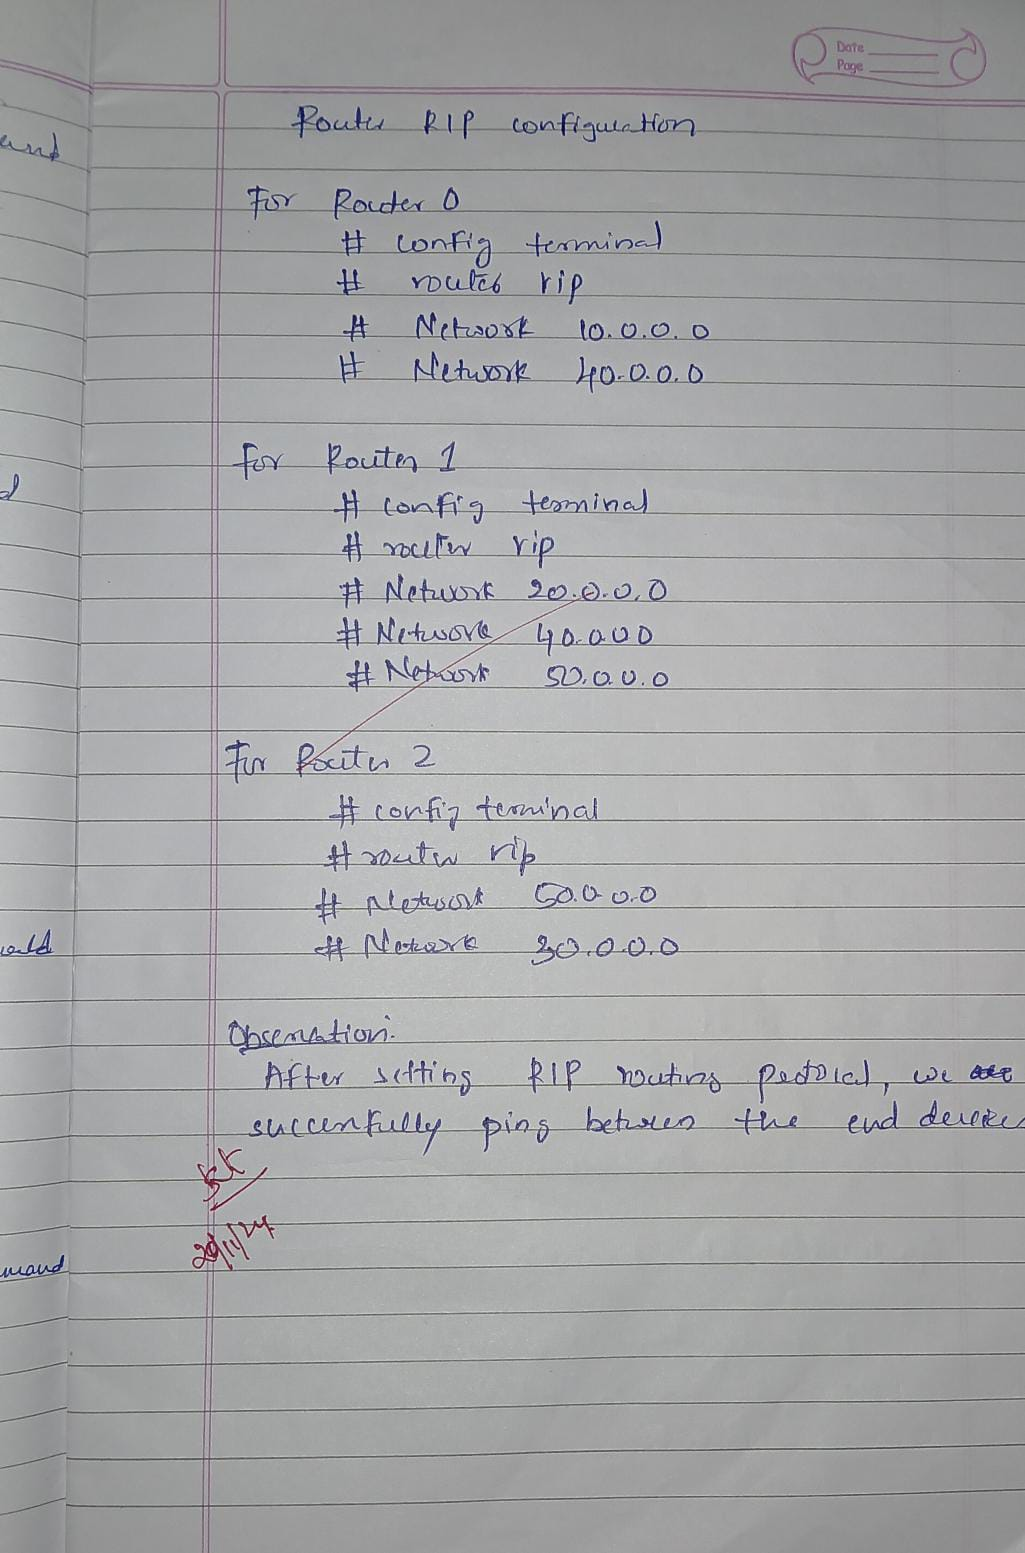 Date
Page
Router RIP configuration
For Router 0
# config terminal
# router rip
# Network 10.0.0.0
# Network 40.0.0.0
for Router 1
# config terminal
# router rip
# Network 20.0.0.0
# Network 40.0.0.0
# Network 50.0.0.0
For Router 2
# config terminal
# router rip
# Network 50.0.0.0
# Network 30.0.0.0
Observation.
After setting RIP routing protocal, we
succenfully ping between the end
29/11/24
mand